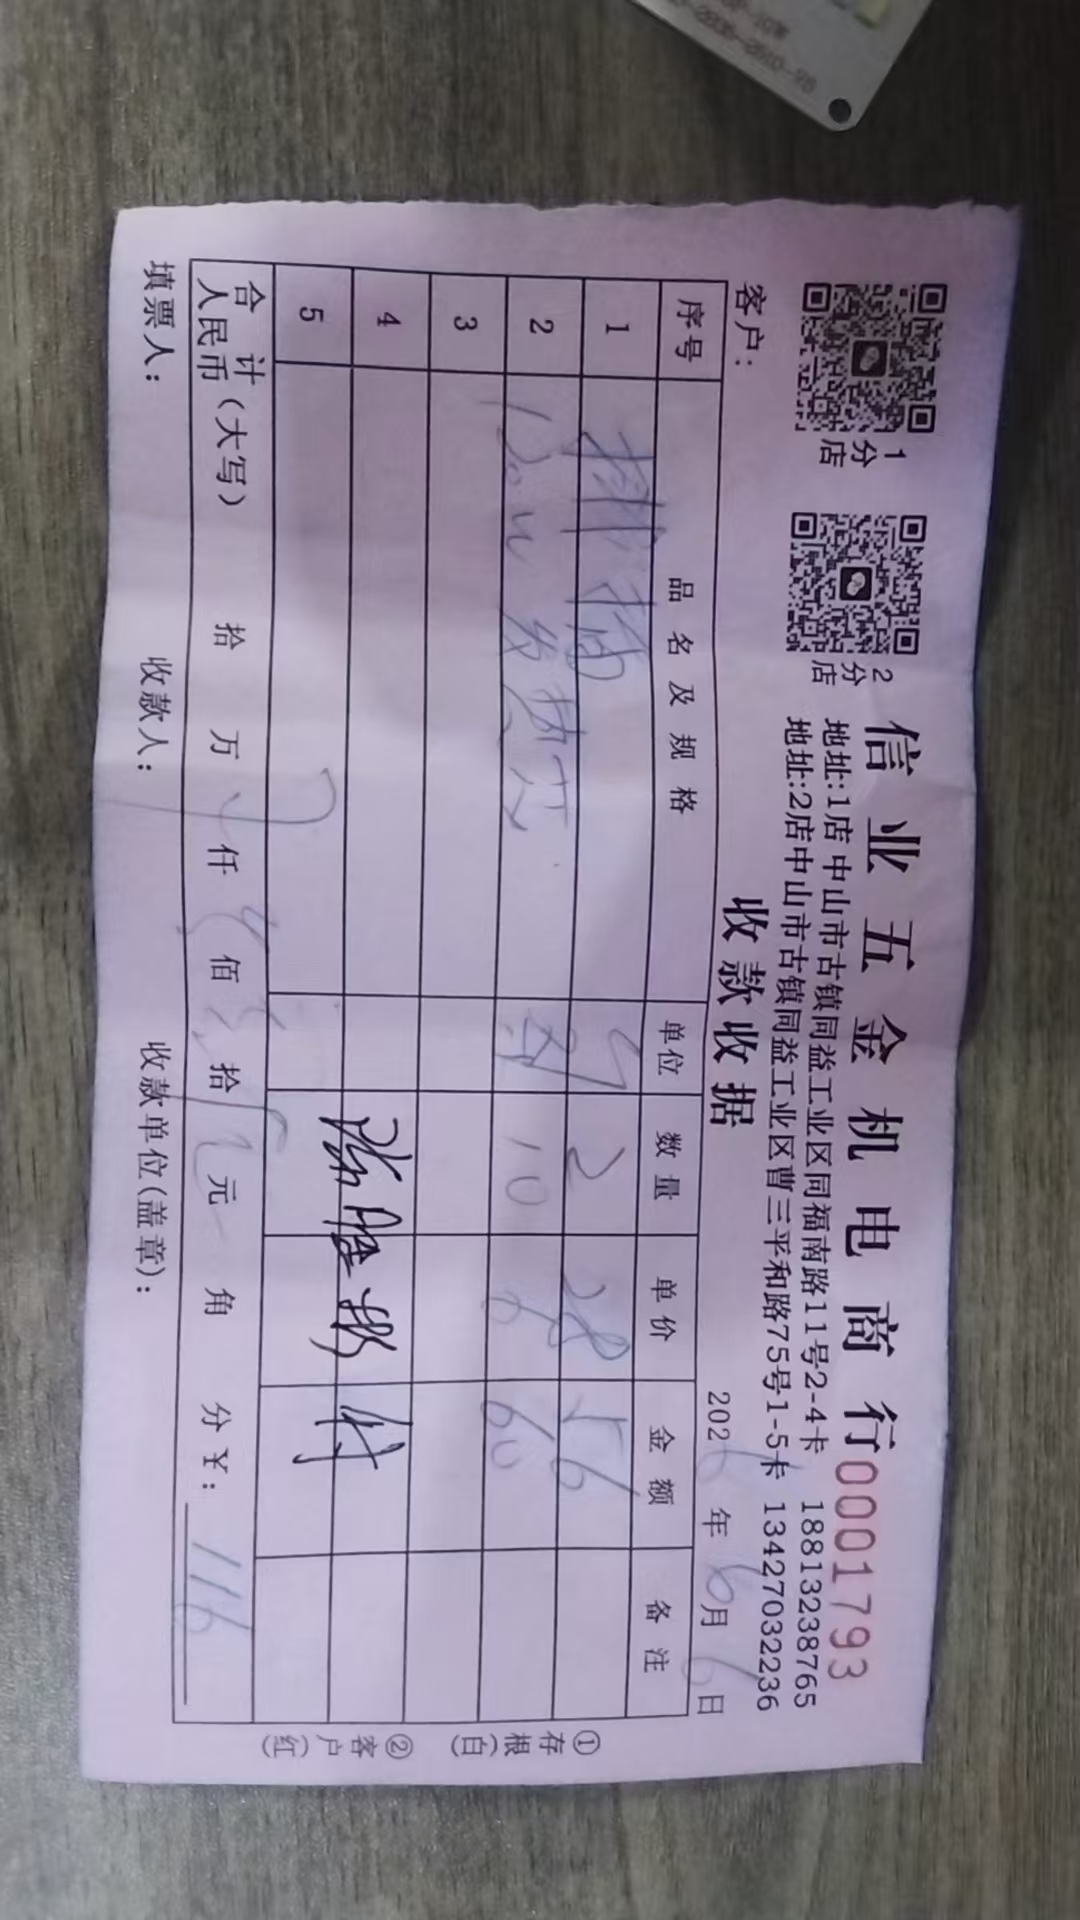 1分店
2分店
信业五金机电商行
0001793
地址:1店 中山市古镇同益工业区同福南路11号2-4卡 18813238765
地址:2店中山市古镇同益工业区曹三平和路75号1-5卡 13427032236
收款收据
客户:
2026年6月6日
序号 品名及规格 单位 数量 单价 金额 备注
1 排插 2 28 56
2 发热芯 10 6 60
3
4
5
合计人民币(大写) 拾 万 仟 佰 拾 元 角 分 ¥: 116
填票人: 收款人: 收款单位(盖章):
①存根(白) ②客户(红)